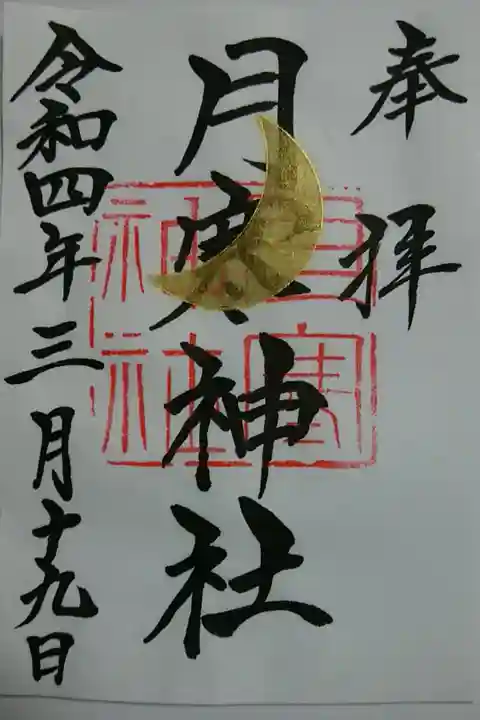 奉拝
月寒神社
令和四年三月十九日
月寒
神社